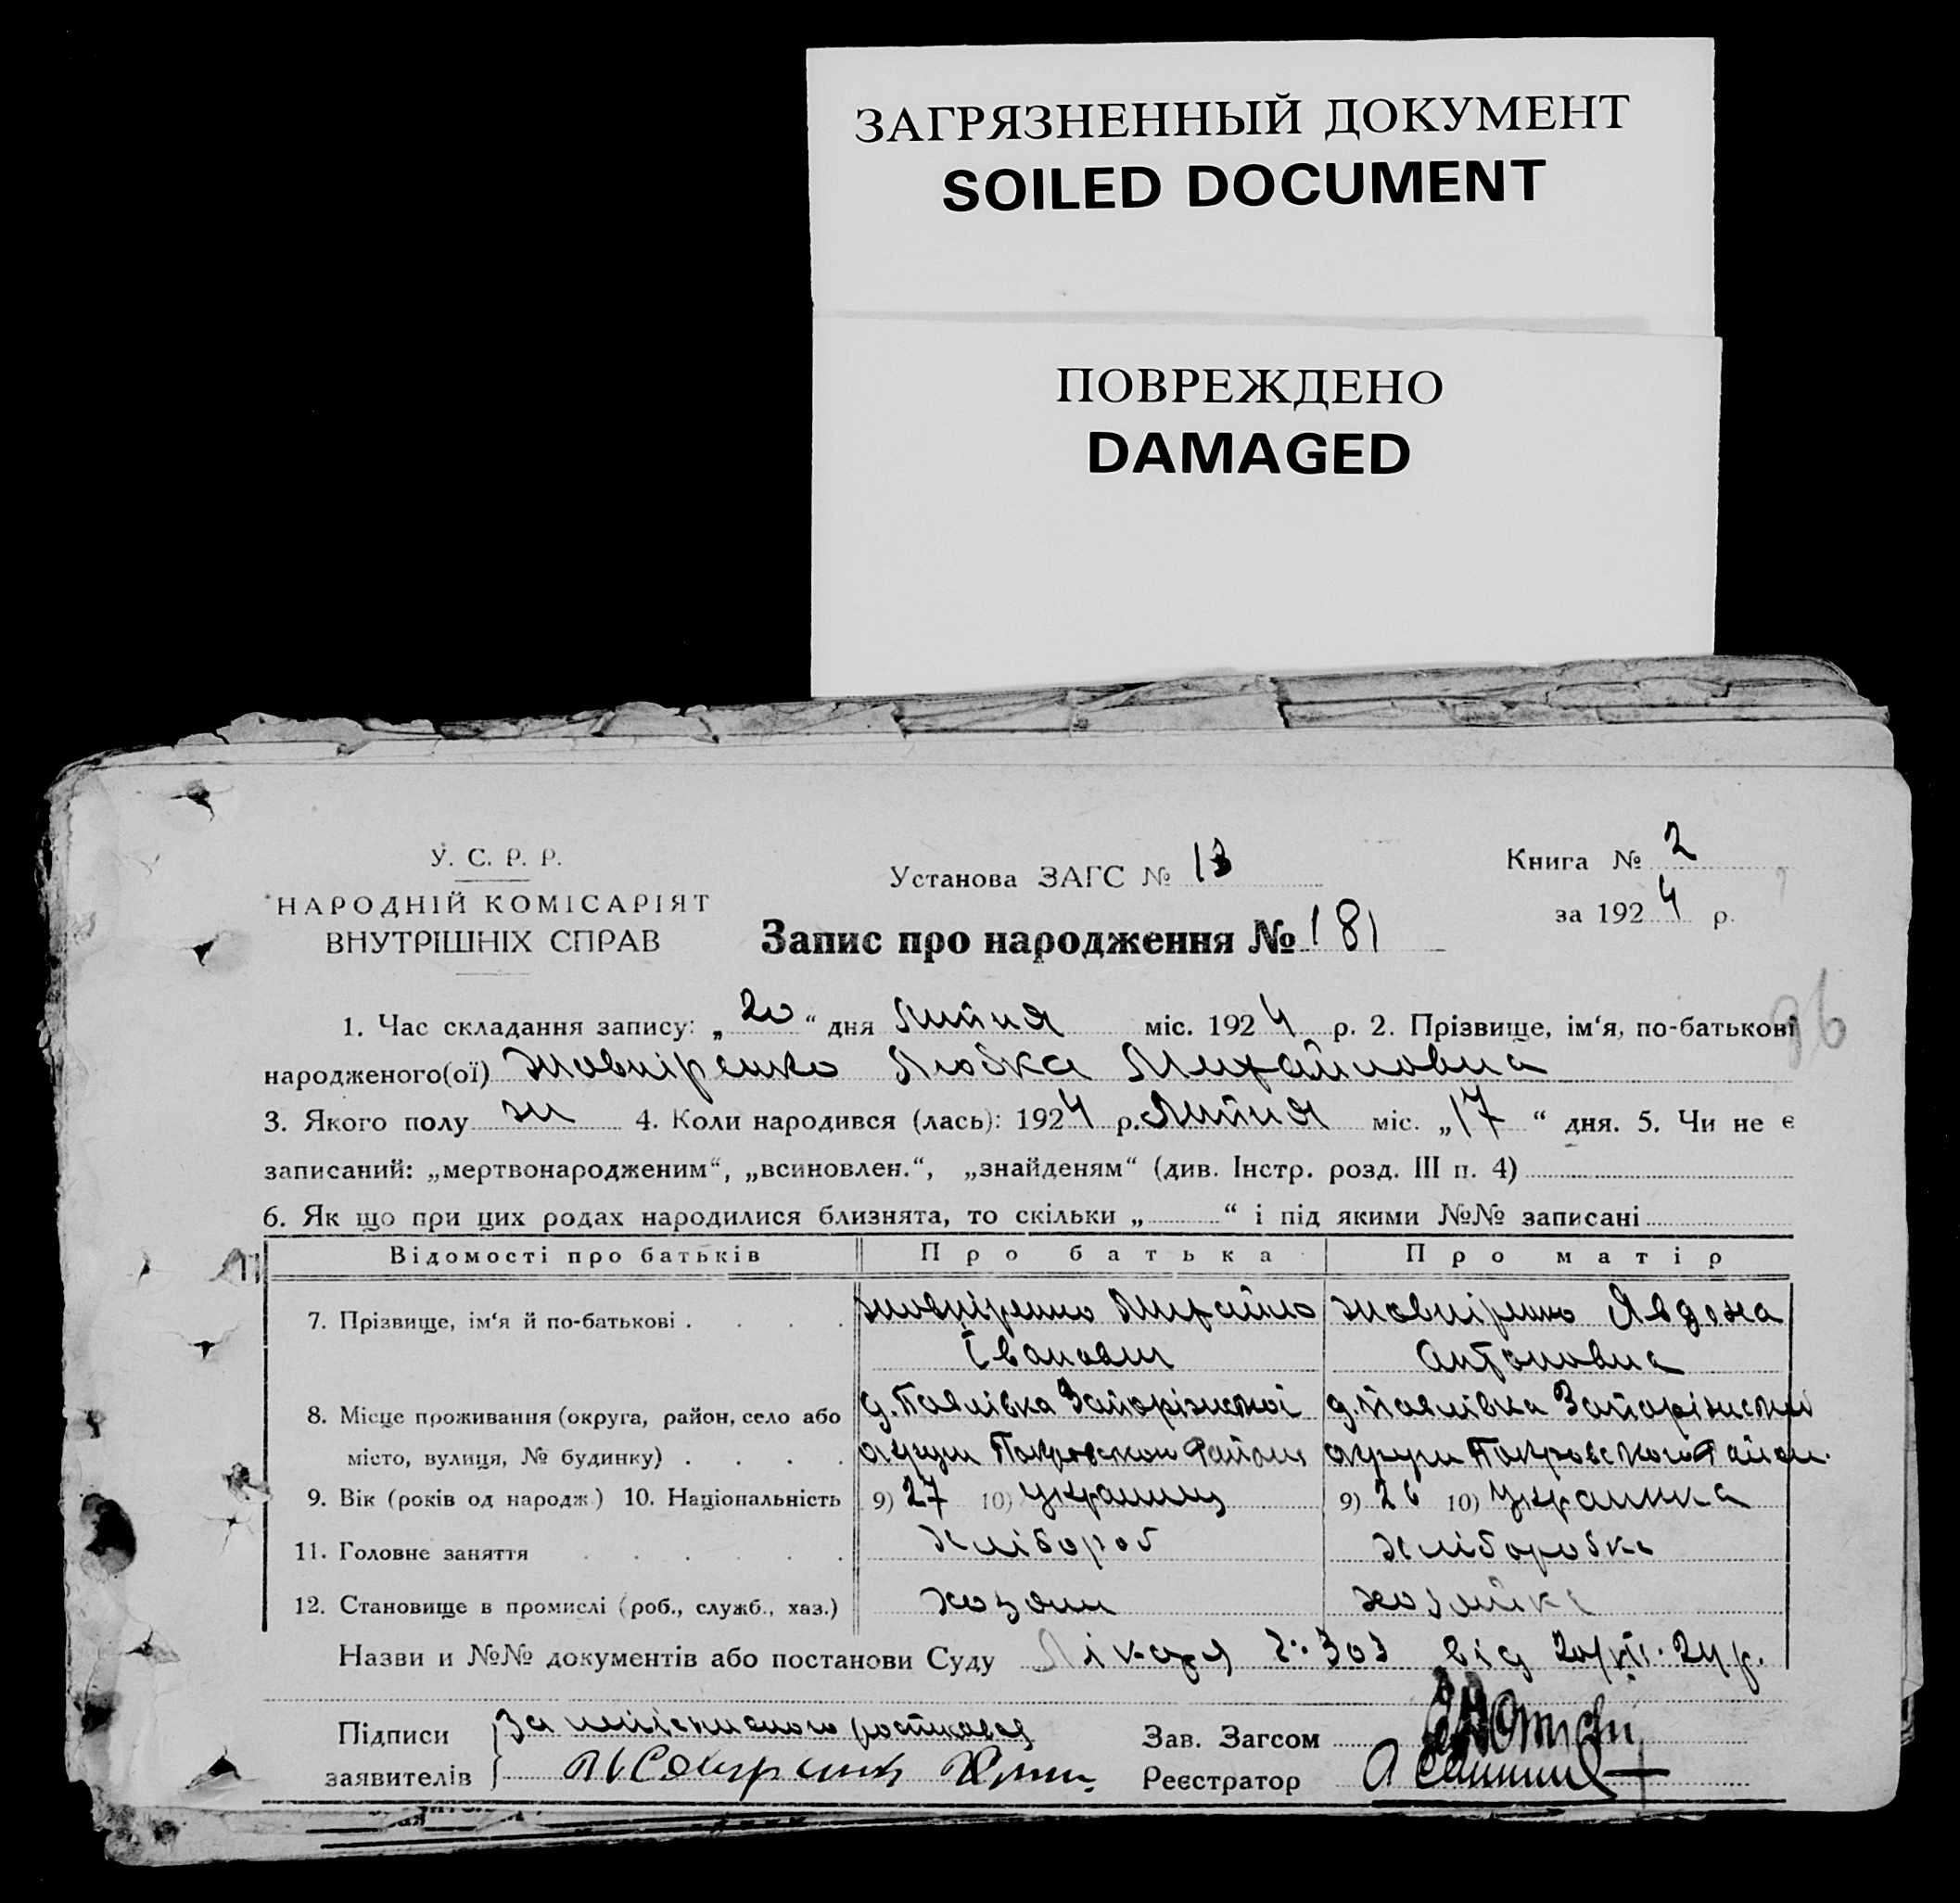 ЗАГРЯЗНЕННЫЙ ДОКУМЕНТ
SOILED DOCUMENT
ПОВРЕЖДЕНО
DAMAGED
У. С. Р. Р.
НАРОДНІЙ КОМІСАРІЯТ
ВНУТРІШНІХ СПРАВ
Установа ЗАГС № 13
Запис про народження № 181
Книга № 2
за 1924 р.
96
1. Час складання запису: „20“ дня Липня міс. 1924 р. 2. Прізвище, ім‘я, по-батькові
народженого(ої) Жовніренко Любка Михайловна
3. Якого полу ж 4. Коли народився (лась): 1924 р. Липня міс. „17“ дня. 5. Чи не є
записаний: „мертвонародженим“, „всиновлен.“, „знайденям“ (див. Інстр. розд. III п. 4)
6. Як що при цих родах народилися близнята, то скільки „ “ і під якими №№ записані
Відомості про батьків Про батька Про матір
7. Прізвище, ім‘я й по-батькові . . . . Жовніренко Михайло Жовніренко Явдоха
Іванович Антоновна
8. Місце проживання (округа, район, село або д. Запорізської д. Запорізської
місто, вулиця, № будинку) . . . . округи Покровского Району округи Покровского Район.
9. Вік (років од народж.) 10. Національність 9) 27 10) Украинец 9) 26 10) Украинка
11. Головне заняття . . . . . . Хлібороб Хліборобка
12. Становище в промислі (роб., служб., хаз.) хозяин хозяйка
Назви и №№ документів або постанови Суду Лікаря 303 від 20/VII. 24 р.
Підписи За
заявителів
Зав. Загсом
Реєстратор